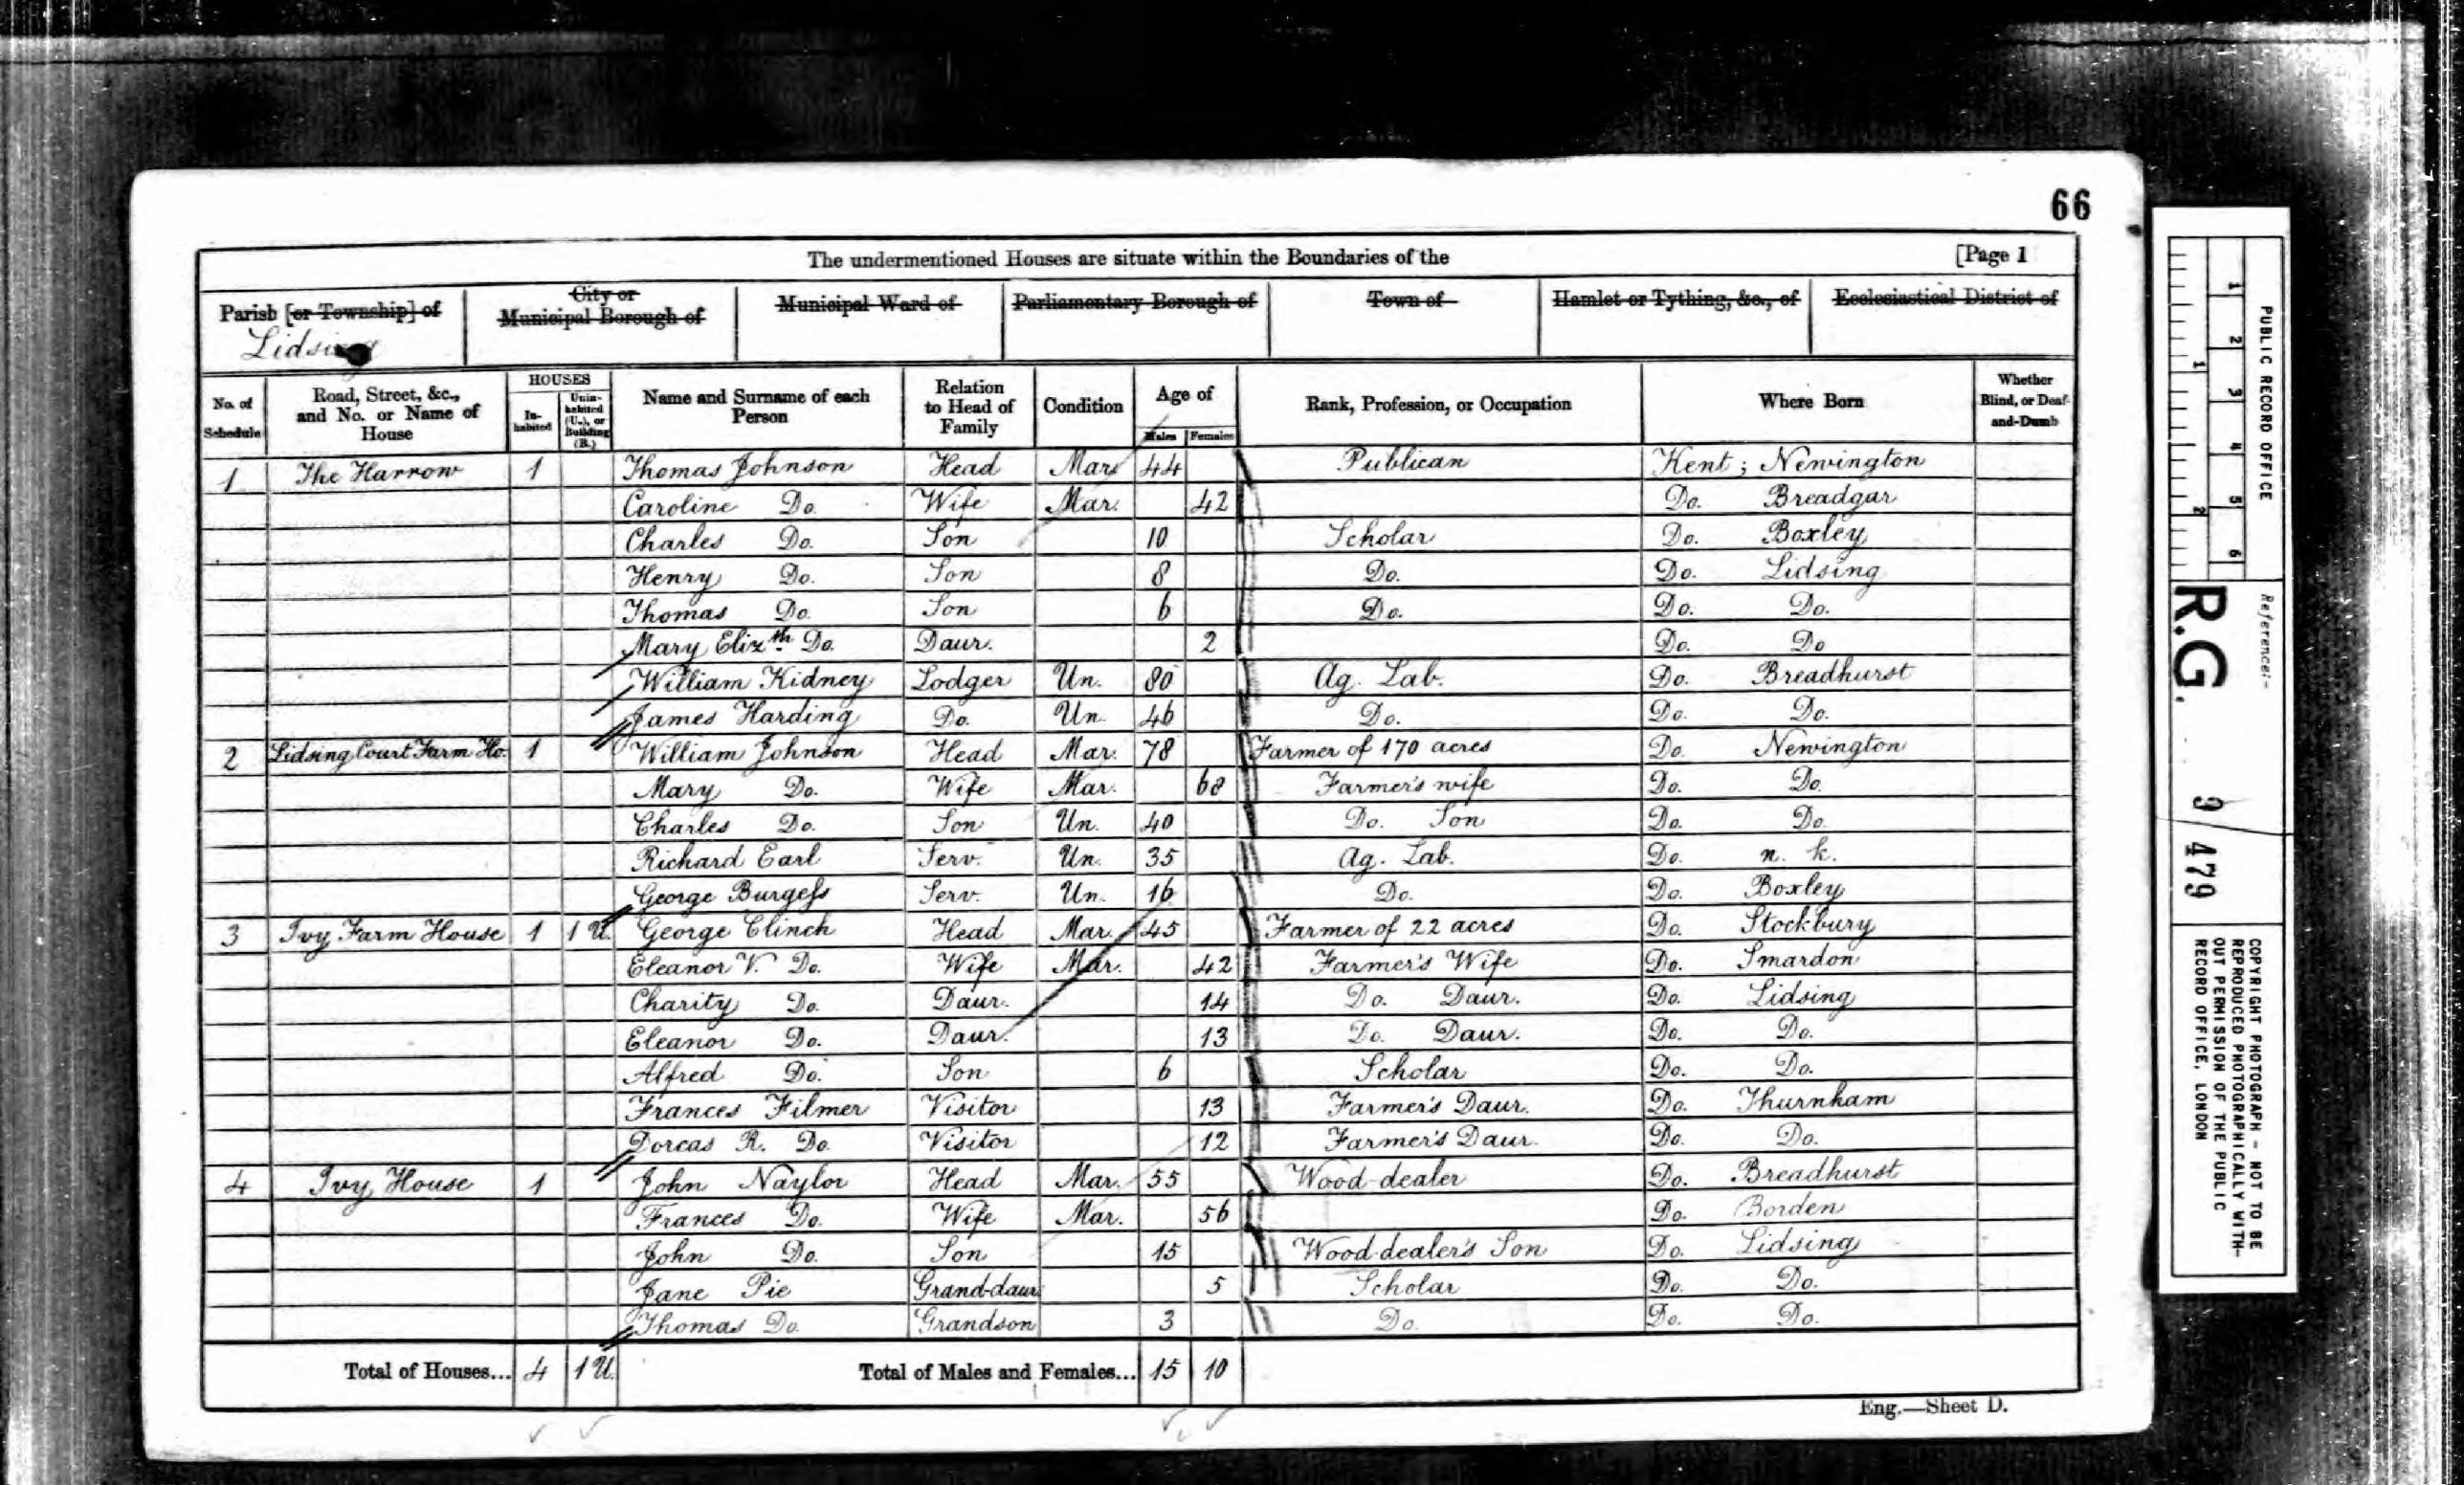 66
The undermentioned Houses are situate within the Boundaries of the [Page 1
Parish [or Township] of Lidsing City or Municipal Borough of Municipal Ward of Parliamentary Borough of Town of Hamlet or Tything, &c., of Ecclesiastical District of
No. of Schedule Road, Street, &c., and No. or Name of House HOUSES In-habited Unin-habited (U.), or Building (B.) Name and Surname of each Person Relation to Head of Family Condition Age of Males Females Rank, Profession, or Occupation Where Born Whether Blind, or Deaf-and-Dumb
1 The Harrow 1 Thomas Johnson Head Mar. 44 Publican Kent; Newington
Caroline Do. Wife Mar. 42 Do. Breadgar
Charles Do. Son 10 Scholar Do. Boxley
Henry Do. Son 8 Do. Do. Lidsing
Thomas Do. Son 6 Do. Do. Do.
Mary Elizth. Do. Daur. 2 Do. Do
William Kidney Lodger Un. 80 Ag. Lab. Do. Breadhurst
James Harding Do. Un. 46 Do. Do. Do.
2 Lidsing Court Farm Ho. 1 William Johnson Head Mar. 78 Farmer of 170 acres Do. Newington
Mary Do. Wife Mar. 68 Farmer's wife Do. Do.
Charles Do. Son Un. 40 Do. Son Do. Do.
Richard Earl Serv. Un. 35 Ag. Lab. Do. n. k.
George Burgess Serv. Un. 16 Do. Do. Boxley
3 Ivy Farm House 1 1 U. George Clinch Head Mar. 45 Farmer of 22 acres Do. Stockbury
Eleanor V. Do. Wife Mar. 42 Farmer's Wife Do. Smardon
Charity Do. Daur. 14 Do. Daur. Do. Lidsing
Eleanor Do. Daur. 13 Do. Daur. Do. Do.
Alfred Do. Son 6 Scholar Do. Do.
Frances Filmer Visitor 13 Farmer's Daur. Do. Thurnham
Dorcas R. Do. Visitor 12 Farmer's Daur. Do. Do.
4 Ivy House 1 John Naylor Head Mar. 55 Wood-dealer Do. Breadhurst
Frances Do. Wife Mar. 56 Do. Borden
John Do. Son 15 Wood-dealer's Son Do. Lidsing
Jane Pie Grand-daur. 5 Scholar Do. Do.
Thomas Do. Grandson 3 Do. Do. Do.
Total of Houses... 4 1 U. Total of Males and Females... 15 10
Eng.—Sheet D.
1 2 3 4 5 6
1 2
PUBLIC RECORD OFFICE
Reference:-
R.G. 9/479
COPYRIGHT PHOTOGRAPH - NOT TO BE
REPRODUCED PHOTOGRAPHICALLY WITH-
OUT PERMISSION OF THE PUBLIC
RECORD OFFICE, LONDON